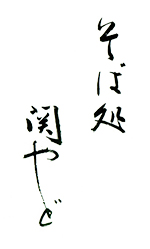 そば処
関やど